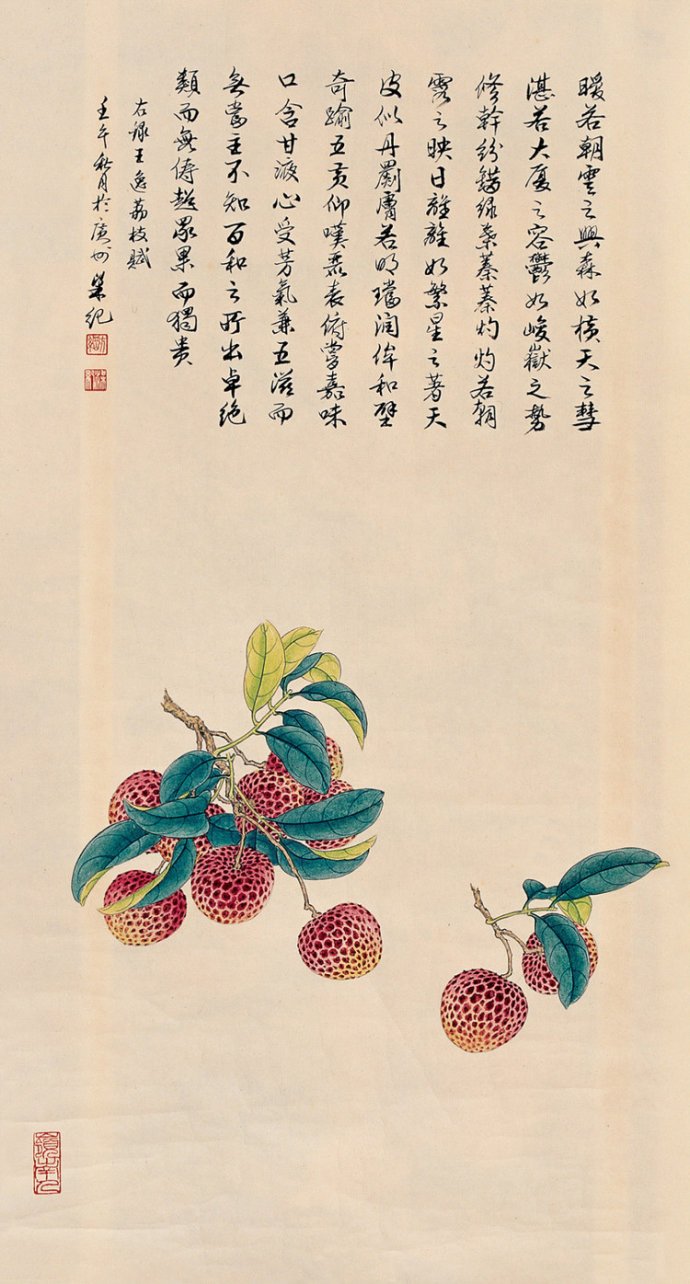 暧若朝雲之興森如横天之彗
湛若大厦之容鬱如峻嶽之勢
修幹紛錯綠葉蓁蓁灼灼若朝
霞之映日離離如繁星之著天
皮似丹罽膚若明璫潤侔和璧
奇踰五黄仰嘆麗表俯嘗嘉味
口含甘液心受芳氣兼五滋而
無常主不知百和之所出卓絶
類而無儔超眾果而獨貴
右録王逸荔枝賦
壬午秋月於廣州榮紀